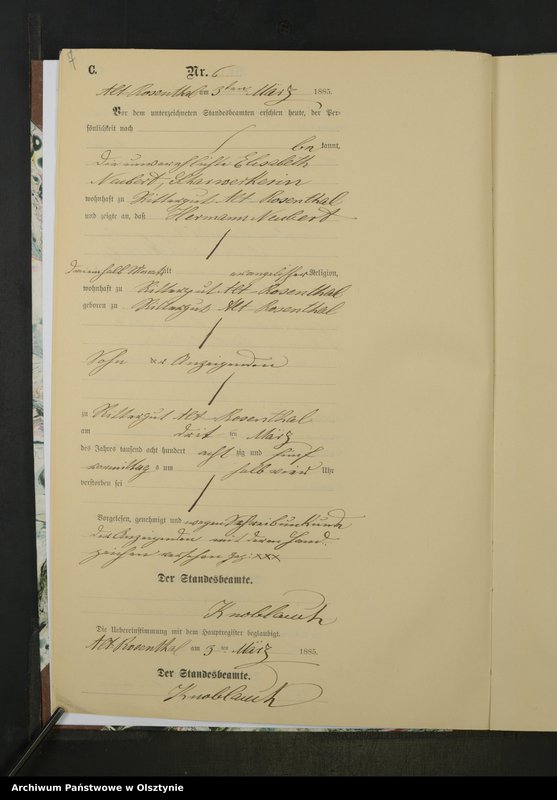 7
C.
Nr. 6
Alt-Rosenthal am 3ten März 1885.
Vor dem unterzeichneten Standesbeamten erschien heute, der Per-
sönlichkeit nach
be kannt,
die unverehlichte Elisabeth
Neubert, Scharwerkerin
wohnhaft zu Rittergut Alt Rosenthal
und zeigte an, daß Hermann Neubert
dreieinhalb Monat alt evangelischer Religion,
wohnhaft zu Rittergut Alt-Rosenthal
geboren zu Rittergut Alt Rosenthal
Sohn der Anzeigenden
zu Rittergut Alt-Rosenthal
am drit ten März
des Jahres tausend acht hundert acht zig und fünf
vormittag s um halb vier Uhr
verstorben sei
Vorgelesen, genehmigt und wegen Schreibunkunde
der Anzeigenden mit deren Hand-
zeichen versehen gez: xxx
Der Standesbeamte.
Knoblauch
Die Uebereinstimmung mit dem Hauptregister beglaubigt.
Alt Rosenthal am 3 ten März 1885.
Der Standesbeamte.
Knoblauch
Archiwum Państwowe w Olsztynie